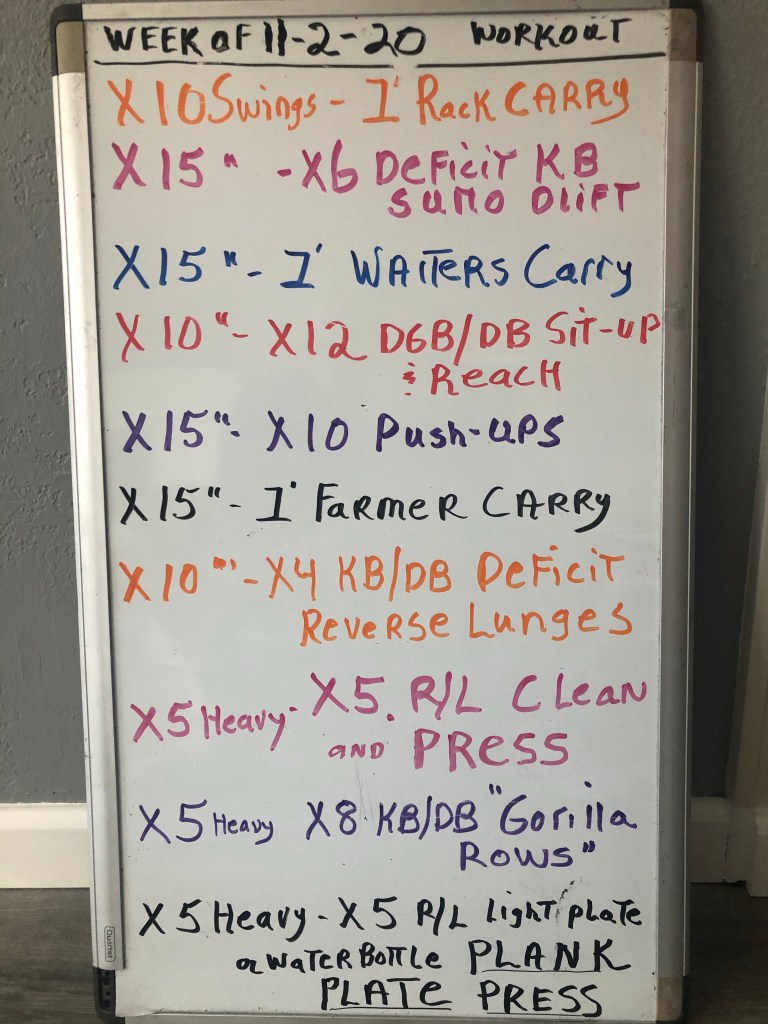 WEEK OF 11-2-20 WORKOUT
X10 Swings - 1' Rack CARRY
X15 " - X6 DeFiciT KB
SUMO DLIFT
X15 " - 1' WAITERS Carry
X10 " - X12 DGB/DB SiT-UP
& ReacH
X15 " - X10 Push-UPS
X15 " - 1' FarmeR CARRY
X10 "' - X4 KB/DB DeFiciT
ReveRse Lunges
X5 Heavy - X5. R/L Clean
AND PRESS
X5 Heavy X8 KB/DB "Gorilla
ROWS"
X5 Heavy - X5 R/L Light plate
or WaTeR BoTTle PLANK
PLATe PRESS
Quartet